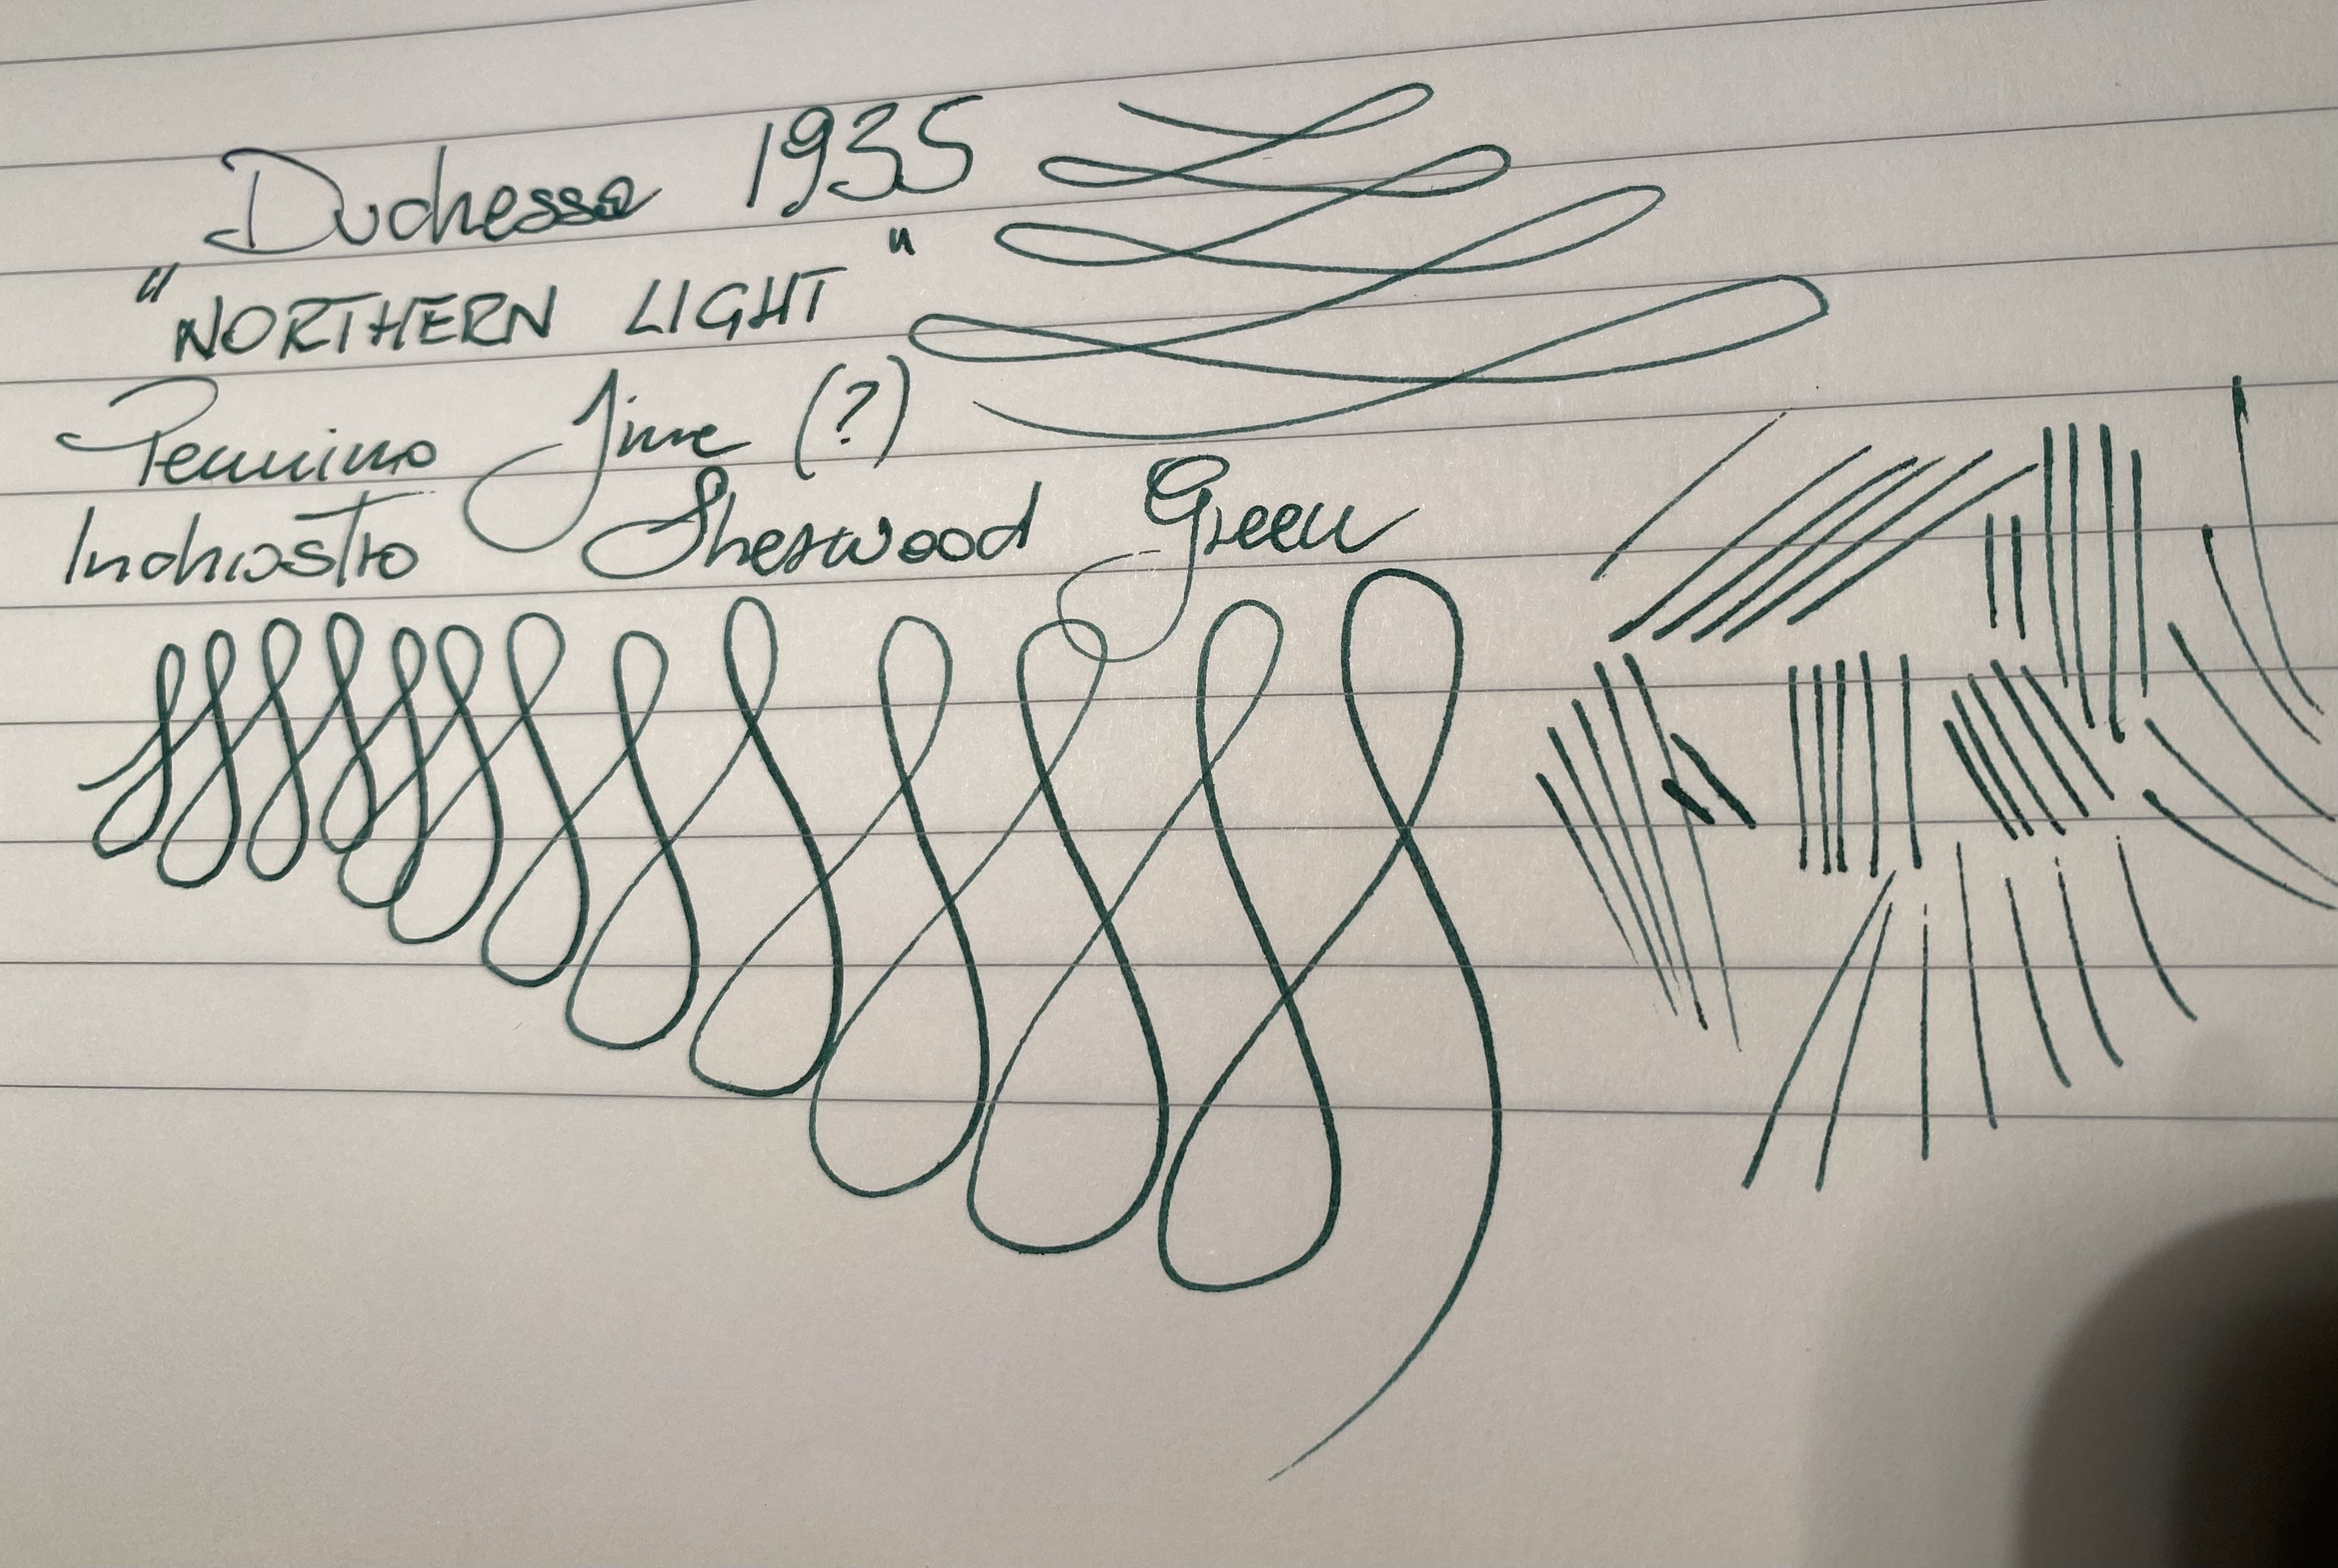 Duchessa 1935
"NORTHERN LIGHT"
Pennino fine (?)
Inchiostro Sherwood Green